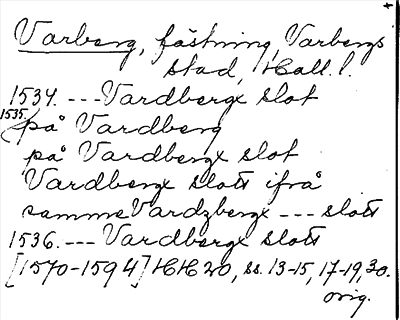 Varberg, fästning, Varbergs
stad, Hall. l.
1534. --- Vardbergx slot
1535. på Vardberg
på Vardbergx slot
Vardbergx slott ifrå
samme Vardzbergx --- slott
1536. --- Vardbergx slott
[1570-1594] HH 20, ss. 13-15, 17-19, 30.
orig.